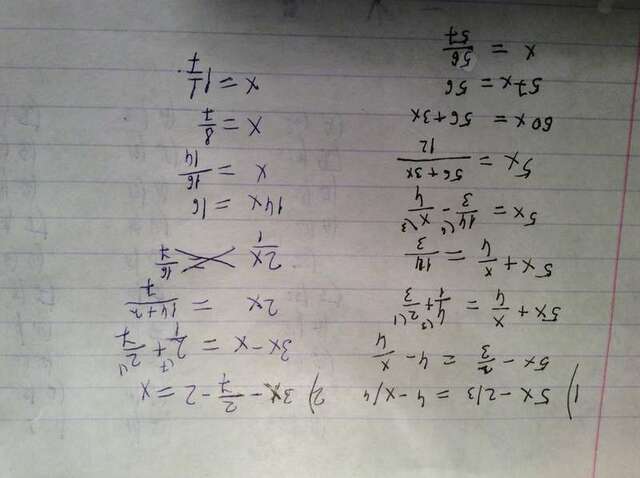 1) 5x - 2/3 = 4 - x/4
5x - 2/3 = 4 - x/4
5x + x/4 = 4/1 (3 + 2/3 (1
5x + x/4 = 14/3
5x = 14/3 (4 - x/4 (3
5x = 56 + 3x/12
60x = 56 + 3x
57x = 56
x = 56/57
2) 3x - 2/7 - 2 = x
3x - x = 2/1 (7 + 2/7 (1
2x = 14 + 2/7
2x/1 = 16/7
14x = 16
x = 16/14
x = 8/7
x = 1 1/7.